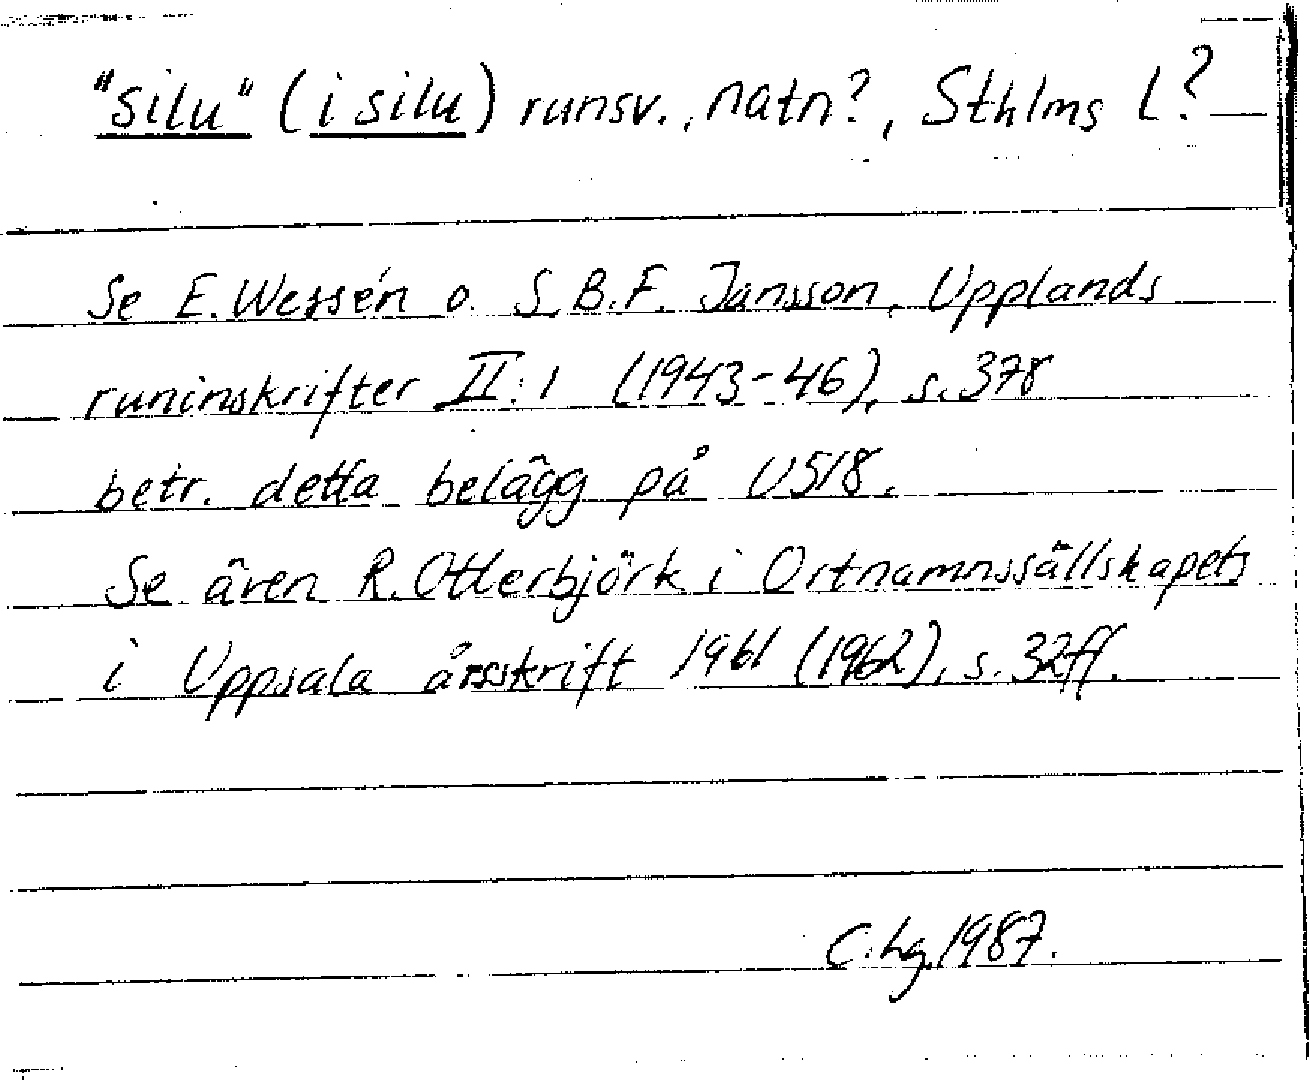 "silu" (i silu) runsv., natn?, Sthlms L?
Se E. Wessén o. S.B.F. Jansson, Upplands
runinskrifter II:1 (1943-46), s. 378
betr. detta belägg på U518.
Se även R. Otterbjörk i Ortnamnssällskapets
i Uppsala årsskrift 1961 (1962), s. 32ff.
C.hg. 1987.